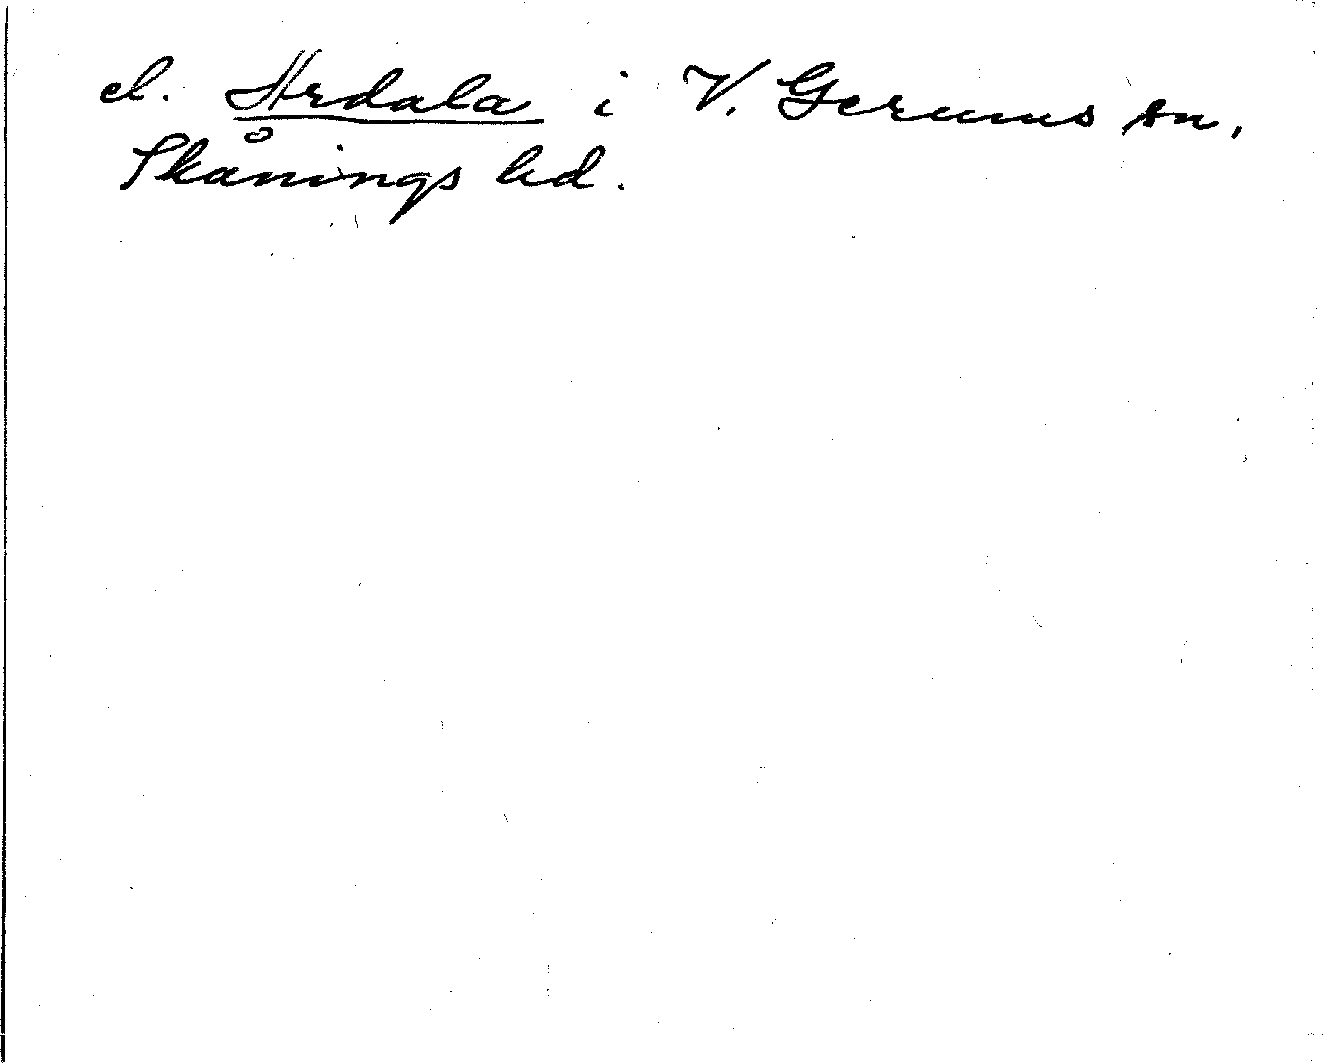 el. Ardala i V. Gerums sn,
Skånings hd.